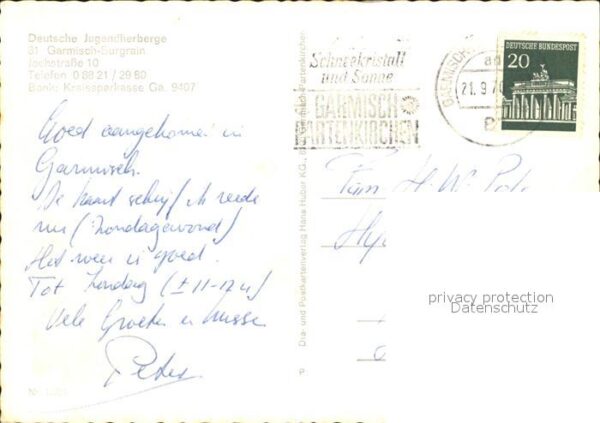 Deutsche Jugendherberge
81 Garmisch-Burgrain
Jochstraße 10
Telefon 0 88 21 / 29 80
Bank: Kreissparkasse Ga. 9407
Goed aangekomen in
Garmisch.
De kaart schrijf ik reeds
nu (Zondagavond)
Het weer is goed.
Tot Zondag (± 11-12 u)
Vele Groeten en kussen
Peter
Nr.
Dia- und Postkartenverlag Hans Huber KG., Garmisch-Partenkirchen
P
Schneekristall
und Sonne
GARMISCH
PARTENKIRCHEN
GARMISCH
21.9.70
DEUTSCHE BUNDESPOST
20
Fam. H. W.
privacy protection
Datenschutz